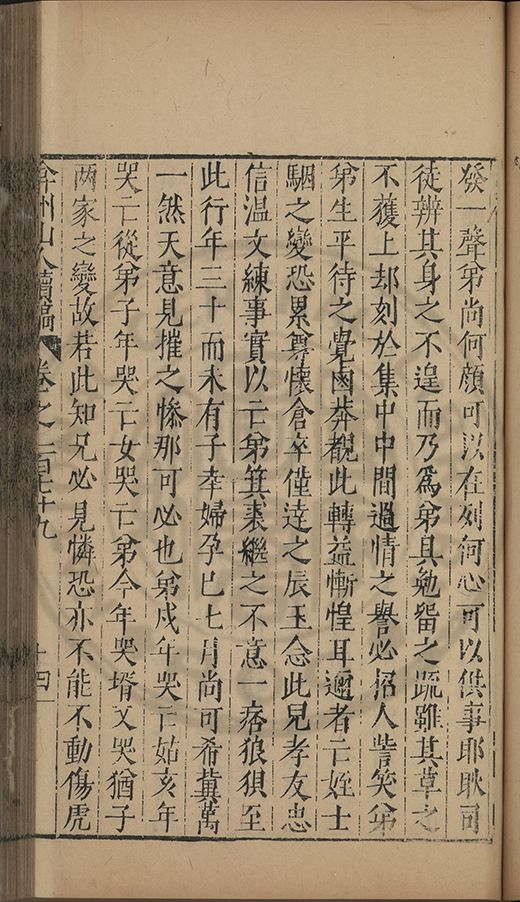 發一聲弟尚何顔可以在列何心可以供事耶耿司
徒辨其身之不遑而乃爲弟具勉留之疏雖其草之
不獲上却刻於集中中間過情之譽必招人訾笑弟
弟生平待之覺鹵莽覩此轉益慚惶耳邇者亡姪士
駰之變恐累尊懷倉卒僅達之辰玉念此兒孝友忠
信温文練事實以亡弟箕裘繼之不意一痞狼狽至
此行年三十而未有子幸婦孕巳七月尚可希冀萬
一然天意見摧之慘那可必也弟戌年哭亡姑亥年
哭亡從弟子年哭亡女哭亡弟今年哭壻又哭猶子
兩家之變故若此知兄必見憐恐亦不能不動傷虎
弇州山人續稿 卷之一百七十九 十四